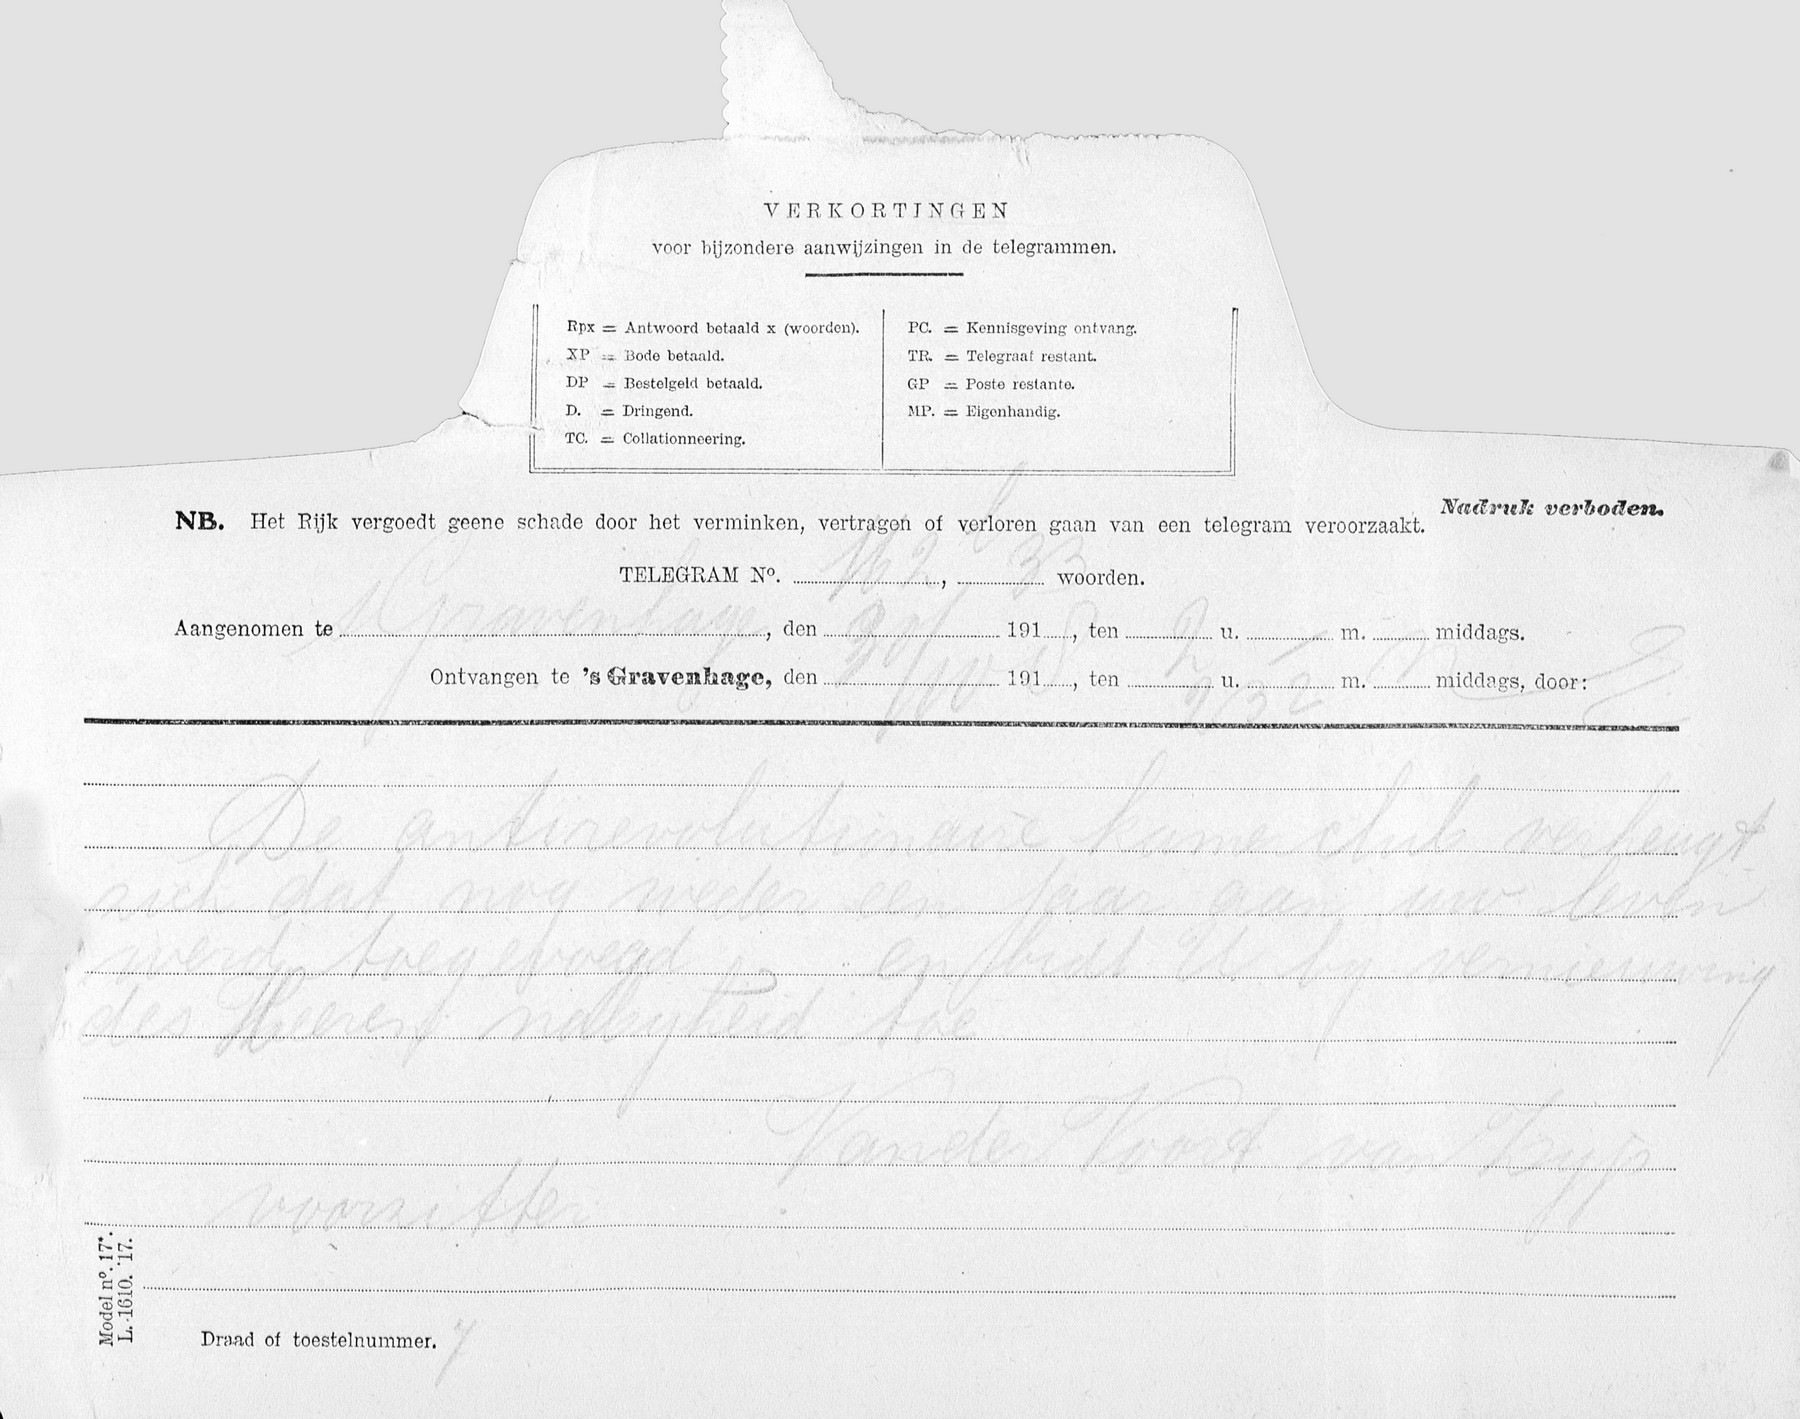 VERKORTINGEN
voor bijzondere aanwijzingen in de telegrammen.
Rpx = Antwoord betaald x (woorden).
XP = Bode betaald.
DP = Bestelgeld betaald.
D. = Dringend.
TC. = Collationneering.
PC. = Kennisgeving ontvang.
TR. = Telegraaf restant.
GP = Poste restante.
MP. = Eigenhandig.
Nadruk verboden.
NB. Het Rijk vergoedt geene schade door het verminken, vertragen of verloren gaan van een telegram veroorzaakt.
TELEGRAM Nº. 162, 33 woorden.
Aangenomen te s Gravenhage, den 191 8, ten 2 u. m. middags.
Ontvangen te 's Gravenhage, den 191 8, ten 2 u. m. middags, door:
De antirevolutionaire kamerclub verheugt
zich dat nog weder een jaar aan uw leven
werd toegevoegd en bidt U by vernieuwing
des Heeren nabyheid toe
Vander Voort van Zyp
voorzitter
Model nº. 17*.
L. 1610. '17.
Draad of toestelnummer. 7